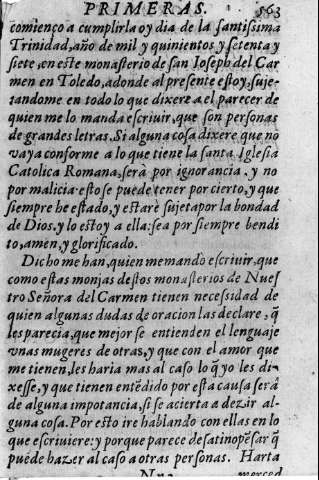 PRIMERAS. 563
comienço a cumplirla oy dia de la santissima
Trinidad, año de mil y quinientos y setenta y
siete, en este monasterio de san Ioseph del Car
men en Toledo, adonde al presente estoy, suje-
tandome en todo lo que dixere a el parecer de
quien me lo manda escriuir, que son personas
de grandes letras. Si alguna cosa dixere que no
vaya conforme a lo que tiene la santa Iglesia
Catolica Romana, serà por ignorancia. y no
por malicia: esto se puede tener por cierto, y que
siempre he estado, y estarè sujeta por la bondad
de Dios, y lo estoy a ella: sea por siempre bendi
to, amen, y glorificado.
Dicho me han, quien me mandò escriuir, que
como estas monjas destos monasterios de Nues
tro Señora del Carmen tienen necessidad de
quien algunas dudas de oracion las declare, q̃
les parecia, que mejor se entienden el lenguaje
vnas mugeres de otras, y que con el amor que
me tienen, les haria mas al caso lo q̃ yo les di-
xesse, y que tienen entẽdido por esta causa serà
de alguna impotancia, si se acierta a dezir al-
guna cosa. Por esto ire hablando con ellas en lo
que escriuiere: y porque parece desatino pẽsar q̃
puede hazer al caso a otras personas. Harta
Nn 2 merced